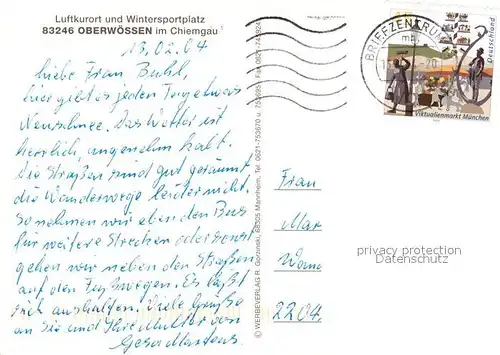 Luftkurort und Wintersportplatz
83246 OBERWÖSSEN im Chiemgau
13.02.04
Liebe Frau Buhl,
hier gibt es jeden Tag etwas
Neuschnee. Das Wetter ist
herrlich, angenehm kalt.
Die Straßen sind gut geräumt,
die Wanderwege leider nicht.
So nehmen wir eben den Bus
für weitere Strecken oder sonst
gehen wir neben den Straßen
auf den Fußwegen. Es läßt
sich aushalten. Viele Grüße
an Sie und Ihre Mutter von
© WERBEVERLAG R. Gorzinski, 68305 Mannheim, Tel. 0621-753670 u.
BRIEFZENTRUM
Deutschland
Viktualienmarkt München
Frau
Mar
2204
privacy protection
Datenschutz